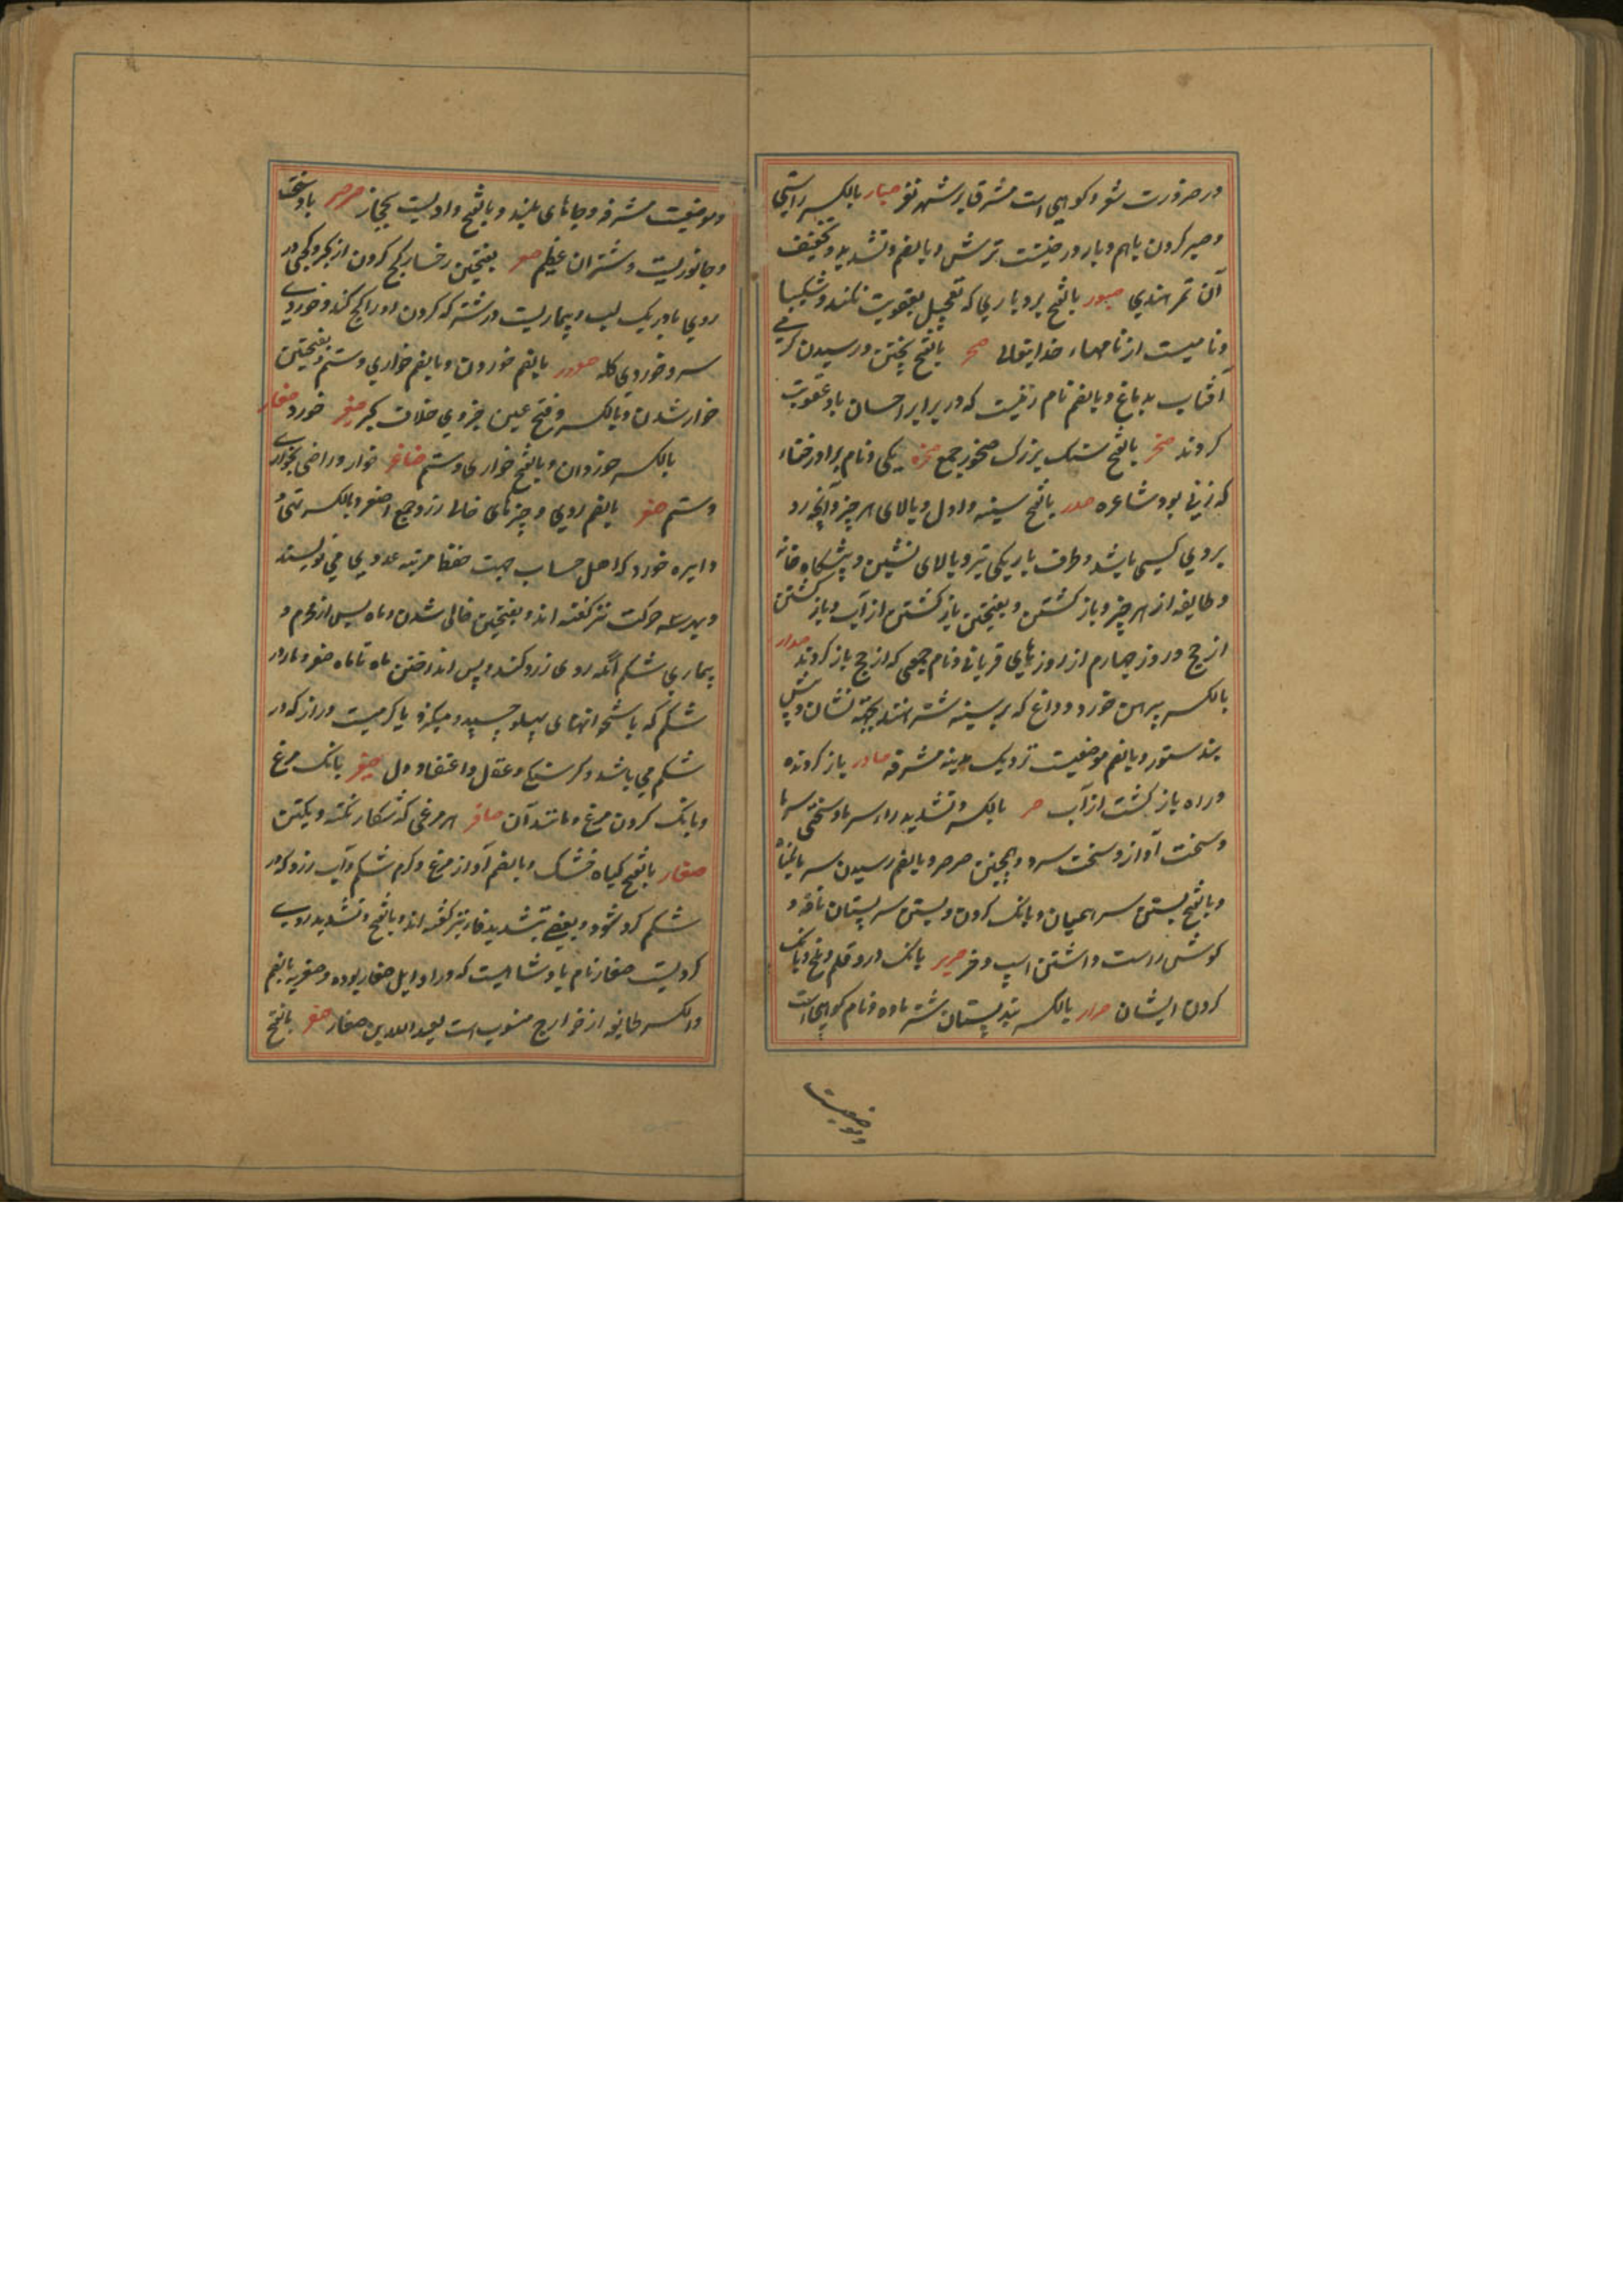 در صرورت شود کوهی است مشرق بر شهر نفر صبار بالکسر راستی
و صبر کردن باهم و بار درختیست ترش و بالضم و تشدید و تخفیف
آن تمر هندی صبور بالفتح بردباری که تعجیل بعقوبت نکند و شکیبا
و نامیست از نامهاء خدایتعالی صخر بالفتح پختن و رسیدن گرمی
آفتاب بدماغ و بالضم نام زنیست که در برابر احسان باو عقوبت
کردند صخر بالفتح سنک بزرک صخور جمع صخره یکی و نام برادر خنساء
که زنی بود شاعره صدر بالفتح سینه و اول و بالای هر چیز و آنچه رد
بروی کسی باشد و طرف باریکی تیر و بالای نشین و پیشگاه خانه
و طایفه از هر چیز و باز کشتن و بفتحتین باز کشتن از آب و باز کشتن
از حج و روز چهارم از روزهای قربانی و نام جمعی که از حج باز کردند صدار
بالکسر پیراهن خورد و داغ که بر سینه شتر نهند بجهة نشان و پیش
بند ستور و بالضم موضعیست نزدیک مدینه مشرفه صادر باز کردنده
و راه باز کشت از آب صر بالکسر و تشدید راء سرما و سختی سرما
و سخت آواز و سخت سرد و همچنین صرصر و بالضم رسیدن سرما بکیاه
و بالفتح بستن سر همیان و بانک کردن و بستن سر پستان ناقه و
کوش راست داشتن اسپ و خر صریر بانک در و قلم و ملخ و بانک
کردن ایشان صرار بالکسر بند پستان شتر ماده و نام کوهی است
و موضعیست
و موضعیست مشرفه و جاهای بلند و بالفتح وادیست بحجاز صرصر باد سخت
و جانوریست و شتران عظیم صعر بفتحتین رخسار کج کردن از کبر و کجی در
روی با در یک لب و بیماریست در شتر که کردن او را کج کند و خوردی
سر و خوردی کله صعرور بالضم خوردن و بالضم خواری و ستم و بفتحتین
خوار شدن و بالکسر و فتح عین خردی خلاف کبر صغیر خورد صغار
بالکسر خوردان و بالفتح خواری و ستم صاغر خوار و راضی بخواری
و ستم صفر بالضم روی و چیزهای خالی زرد جمع اصفر و بالکسر تهی و
دایره خورد که اهل حساب جهت حفظ مرتبه عددی می نویسند
و بهر سه حرکت نیز کفته اند و بفتحتین خالی شدن و ماه پس از محرم و
بیماری شکم آنکه روی زرد کند و پس انداختن ماه تا ماه صفر و مار در
شکم که باستخوانهای پهلو چسپد و میکزد یا کرمیست دراز که در
شکم می باشد و کرسنکی و عقل و اعتقاد دل صفیر بانک مرغ
و بانک کردن مرغ و مانند آن صافر هر مرغی که شکار نکند و یکتن
صفار بالفتح کیاه خشک و بالضم آواز مرغ و کرم شکم و آب زرد که در
شکم کرد شود و بعضی بتشدید فا نیز کفته اند و بالفتح و تشدید روی
کر دیست صفار نام پادشاهیست که در اوایل صفار بوده و صفریه بالضم
و الکسر طایفه از خوارج منسوب است بعبد الله بن صفار صقر بالفتح